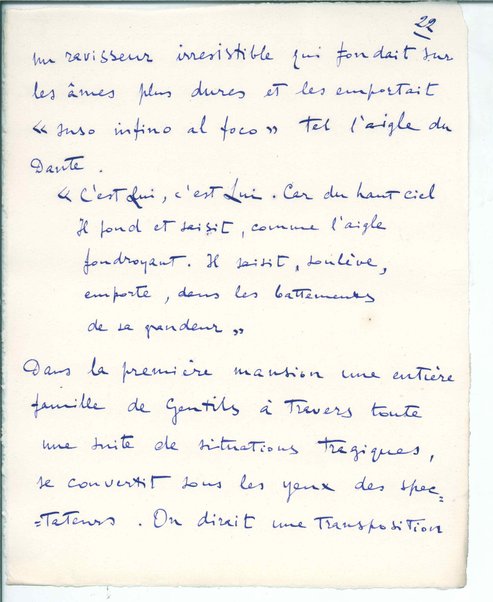 22
un ravisseur irresistible qui fondait sur
les âmes plus dures et les emportait
« suso infino al foco » tel l'aigle du
Dante.
« C'est Lui, c'est Lui. Car du haut ciel
Il fond et saisit, comme l'aigle
foudroyant. Il saisit, soulève,
emporte, dans les battements
de sa grandeur »
Dans la première mansion une entière
famille de Gentils à travers toute
une suite de situations tragiques,
se convertit sous les yeux des spec=
=tateurs. On dirait une transposition